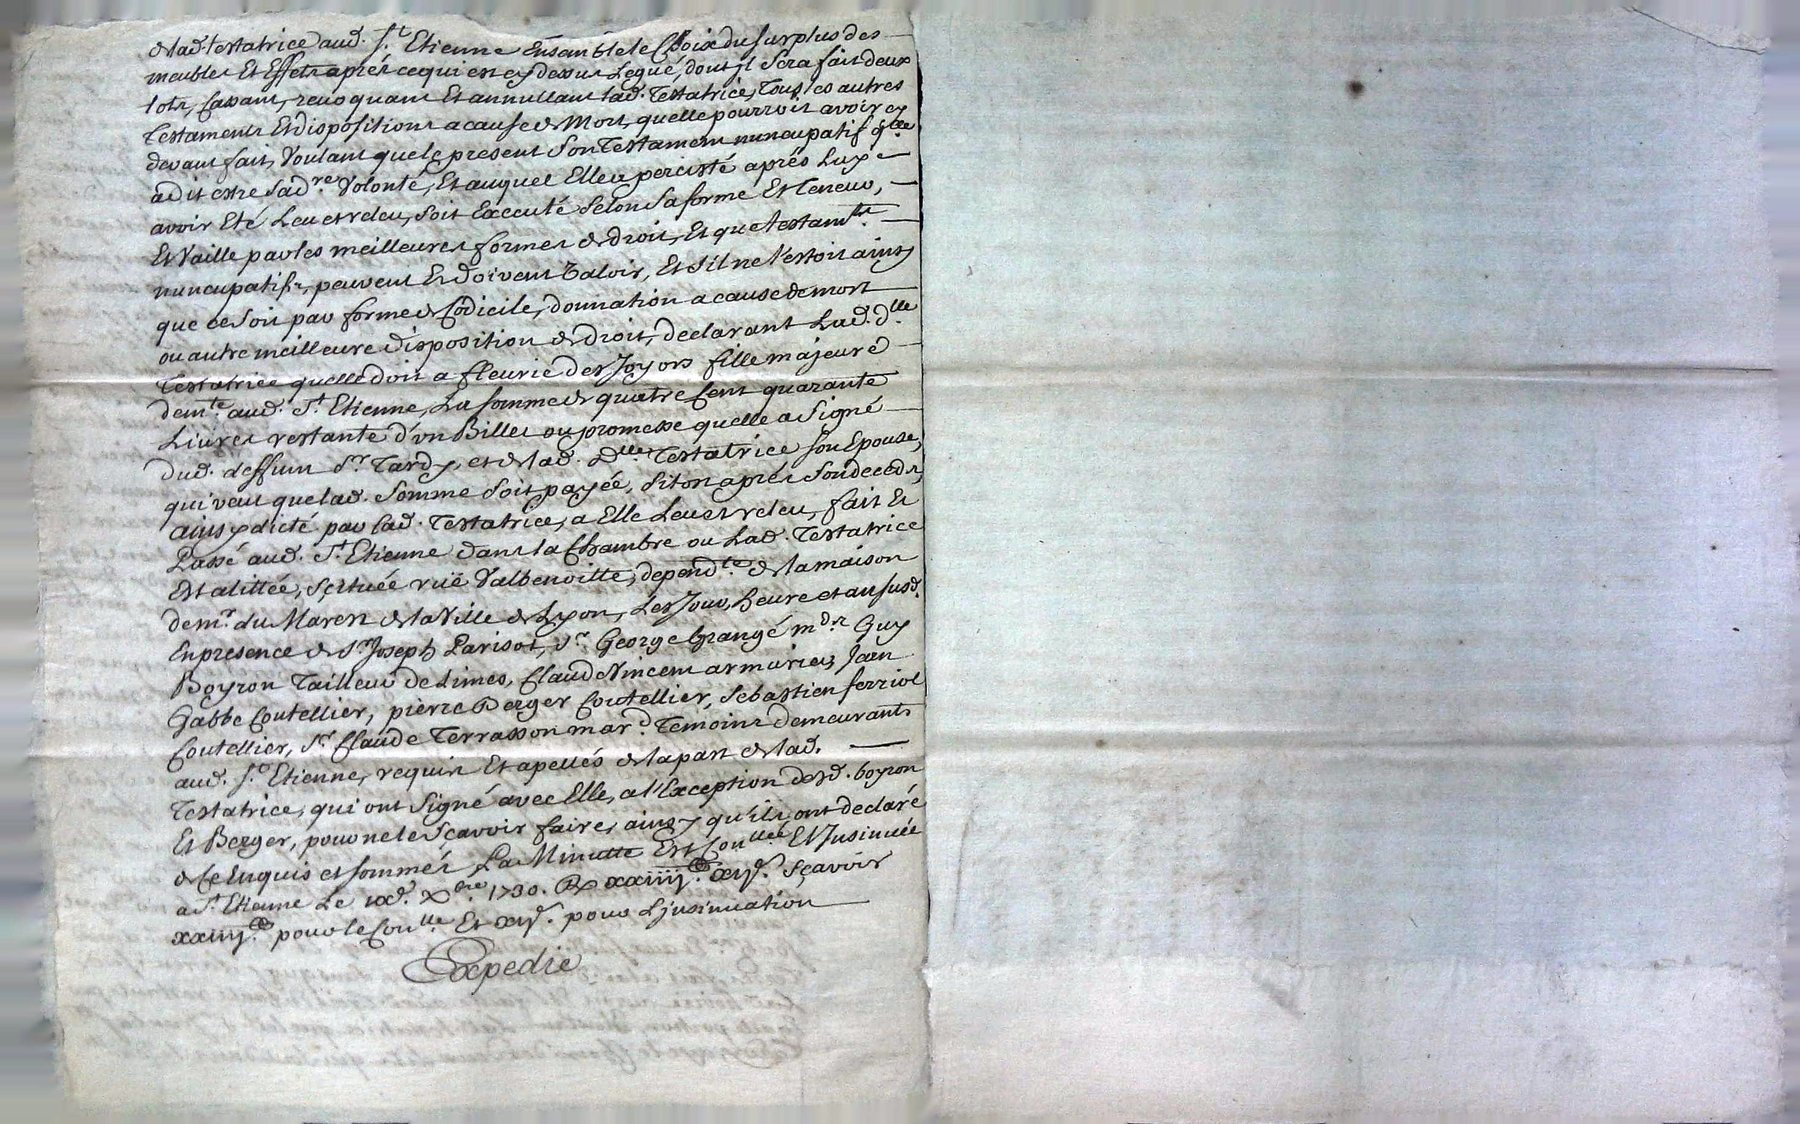 de lad. testatrice aud. St. Etienne Ensemble le Choix du surplus des
meubles Et Effets aprés ce qui est cy dessus Legué, dont jl Sera fait deux
lots, Cassant, revoquant Et annullant lad. Testatrice, Tous les autres
Testaments Et dispositions a cause de Mort, quelle pourroit avoir cy
devant fait, Voulant que le present Son Testament nuncupatif qlle
a dit estre Sa dre Volonté, Et auquel Elle a percisté aprés Luy
avoir Eté Leu et releu, soit Executé Selon Sa forme Et Teneur,
Et Vaille par les meilleures formes de droit, Et que testamts
nuncupatifs, peuvent Et doivent Valoir, Et s'il ne l'estoit ainsy
que ce Soit par forme de Codicile, donnation a cause de mort
ou autre meilleure disposition de droit, declarant Lad. dlle
Testatrice quelle doit a fleurie des Joyors fille majeure
demte. aud. St. Etienne, La somme de quatre Cent quarante
Livres restante d'un Billet ou promesse quelle a Signé
dud. deffunt Sr. Tardy, et de lad. Dlle Testatrice son Epouse,
qui veut que lad. Somme Soit payée, sitot aprés Son deceds,
ainsy dicté par lad. Testatrice, a Elle Leu et releu, fait Et
Passé aud. St. Etienne dans la Chambre ou Lad. Testatrice
Est alittée, scituée ruë Valbenoitte, dependte. de la maison
de mr. du Marest de la Ville de Lyon, Les Jour, heure et an susd.
En presence de Sr. Joseph Parisot, Sr. George Grangé mds. Guy
Boyron Tailleur de Limes, Claude Vincent armurier, Jean
Gabbe Coutellier, pierre Berger Coutellier, Sebastien ferriol
Coutellier, Sr. Claude Terrasson mard. Temoins demeurants
aud. St. Etienne, requis Et apellés de la part de lad.
Testatrice, qui ont Signé avec Elle, a l'Exception desd. boyron
Et Berger, pour ne le Sçavoir faire, ainsy qu'ils ont declaré
de Ce Enquis et sommés La Minutte Est Conllée Et Insinuée
a St. Etienne Le xbre 1730. Sçavoir
pour le Conlle Et pour L'jnsinuation
Expedié